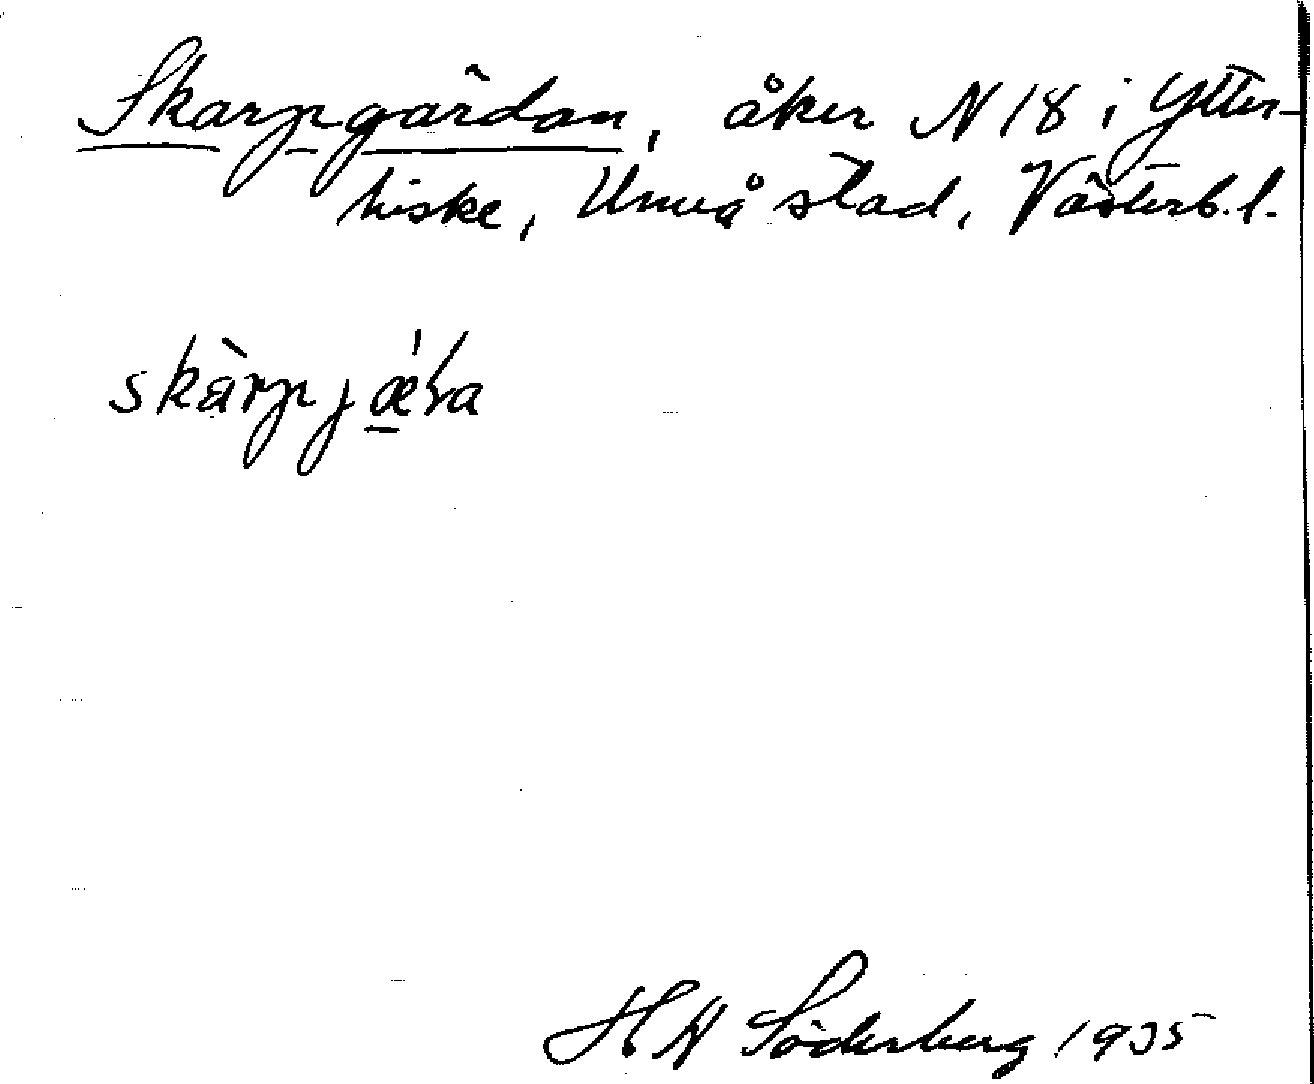 Skarpgärdan, åker N 18 i Ytter-
hiske, Umeå stad, Västerb. l.
skàrpjǽ̱ɽa
H N Söderberg 1935